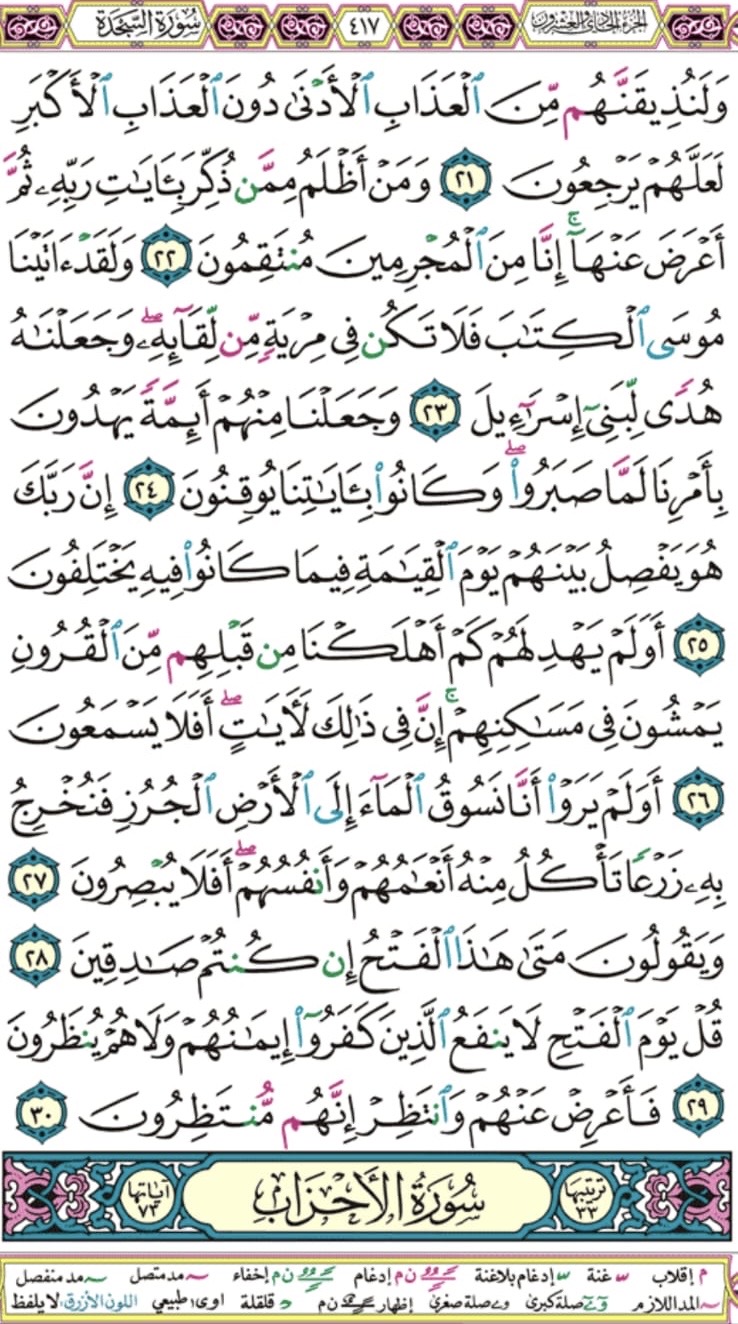 سُورَةُ السَّجْدَةِ ٤١٧ الجزء الحادي والعشرون
وَلَنُذِيقَنَّهُم مِّنَ ٱلْعَذَابِ ٱلْأَدْنَىٰ دُونَ ٱلْعَذَابِ ٱلْأَكْبَرِ
لَعَلَّهُمْ يَرْجِعُونَ ٢١ وَمَنْ أَظْلَمُ مِمَّن ذُكِّرَ بِـَٔايَـٰتِ رَبِّهِۦ ثُمَّ
أَعْرَضَ عَنْهَآ ۚ إِنَّا مِنَ ٱلْمُجْرِمِينَ مُنتَقِمُونَ ٢٢ وَلَقَدْ ءَاتَيْنَا
مُوسَى ٱلْكِتَـٰبَ فَلَا تَكُن فِى مِرْيَةٍ مِّن لِّقَآئِهِۦ ۖ وَجَعَلْنَـٰهُ
هُدًى لِّبَنِىٓ إِسْرَٰٓءِيلَ ٢٣ وَجَعَلْنَا مِنْهُمْ أَئِمَّةً يَهْدُونَ
بِأَمْرِنَا لَمَّا صَبَرُوا۟ ۖ وَكَانُوا۟ بِـَٔايَـٰتِنَا يُوقِنُونَ ٢٤ إِنَّ رَبَّكَ
هُوَ يَفْصِلُ بَيْنَهُمْ يَوْمَ ٱلْقِيَـٰمَةِ فِيمَا كَانُوا۟ فِيهِ يَخْتَلِفُونَ
٢٥ أَوَلَمْ يَهْدِ لَهُمْ كَمْ أَهْلَكْنَا مِن قَبْلِهِم مِّنَ ٱلْقُرُونِ
يَمْشُونَ فِى مَسَـٰكِنِهِمْ ۚ إِنَّ فِى ذَٰلِكَ لَـَٔايَـٰتٍ ۖ أَفَلَا يَسْمَعُونَ
٢٦ أَوَلَمْ يَرَوْا۟ أَنَّا نَسُوقُ ٱلْمَآءَ إِلَى ٱلْأَرْضِ ٱلْجُرُزِ فَنُخْرِجُ
بِهِۦ زَرْعًا تَأْكُلُ مِنْهُ أَنْعَـٰمُهُمْ وَأَنفُسُهُمْ ۖ أَفَلَا يُبْصِرُونَ ٢٧
وَيَقُولُونَ مَتَىٰ هَـٰذَا ٱلْفَتْحُ إِن كُنتُمْ صَـٰدِقِينَ ٢٨
قُلْ يَوْمَ ٱلْفَتْحِ لَا يَنفَعُ ٱلَّذِينَ كَفَرُوٓا۟ إِيمَـٰنُهُمْ وَلَا هُمْ يُنظَرُونَ
٢٩ فَأَعْرِضْ عَنْهُمْ وَٱنتَظِرْ إِنَّهُم مُّنتَظِرُونَ ٣٠
ترتيبها ٣٣ سُورَةُ الأَحْزَابِ آياتها ٧٣
م إقلاب غنة إدغام بلاغنة ن م إدغام ن م إخفاء مد متصل مد منفصل
المد اللازم صلة كبرى صلة صغرى إظهار ن م قلقلة طبيعي اللون الأزرق: لا يلفظ